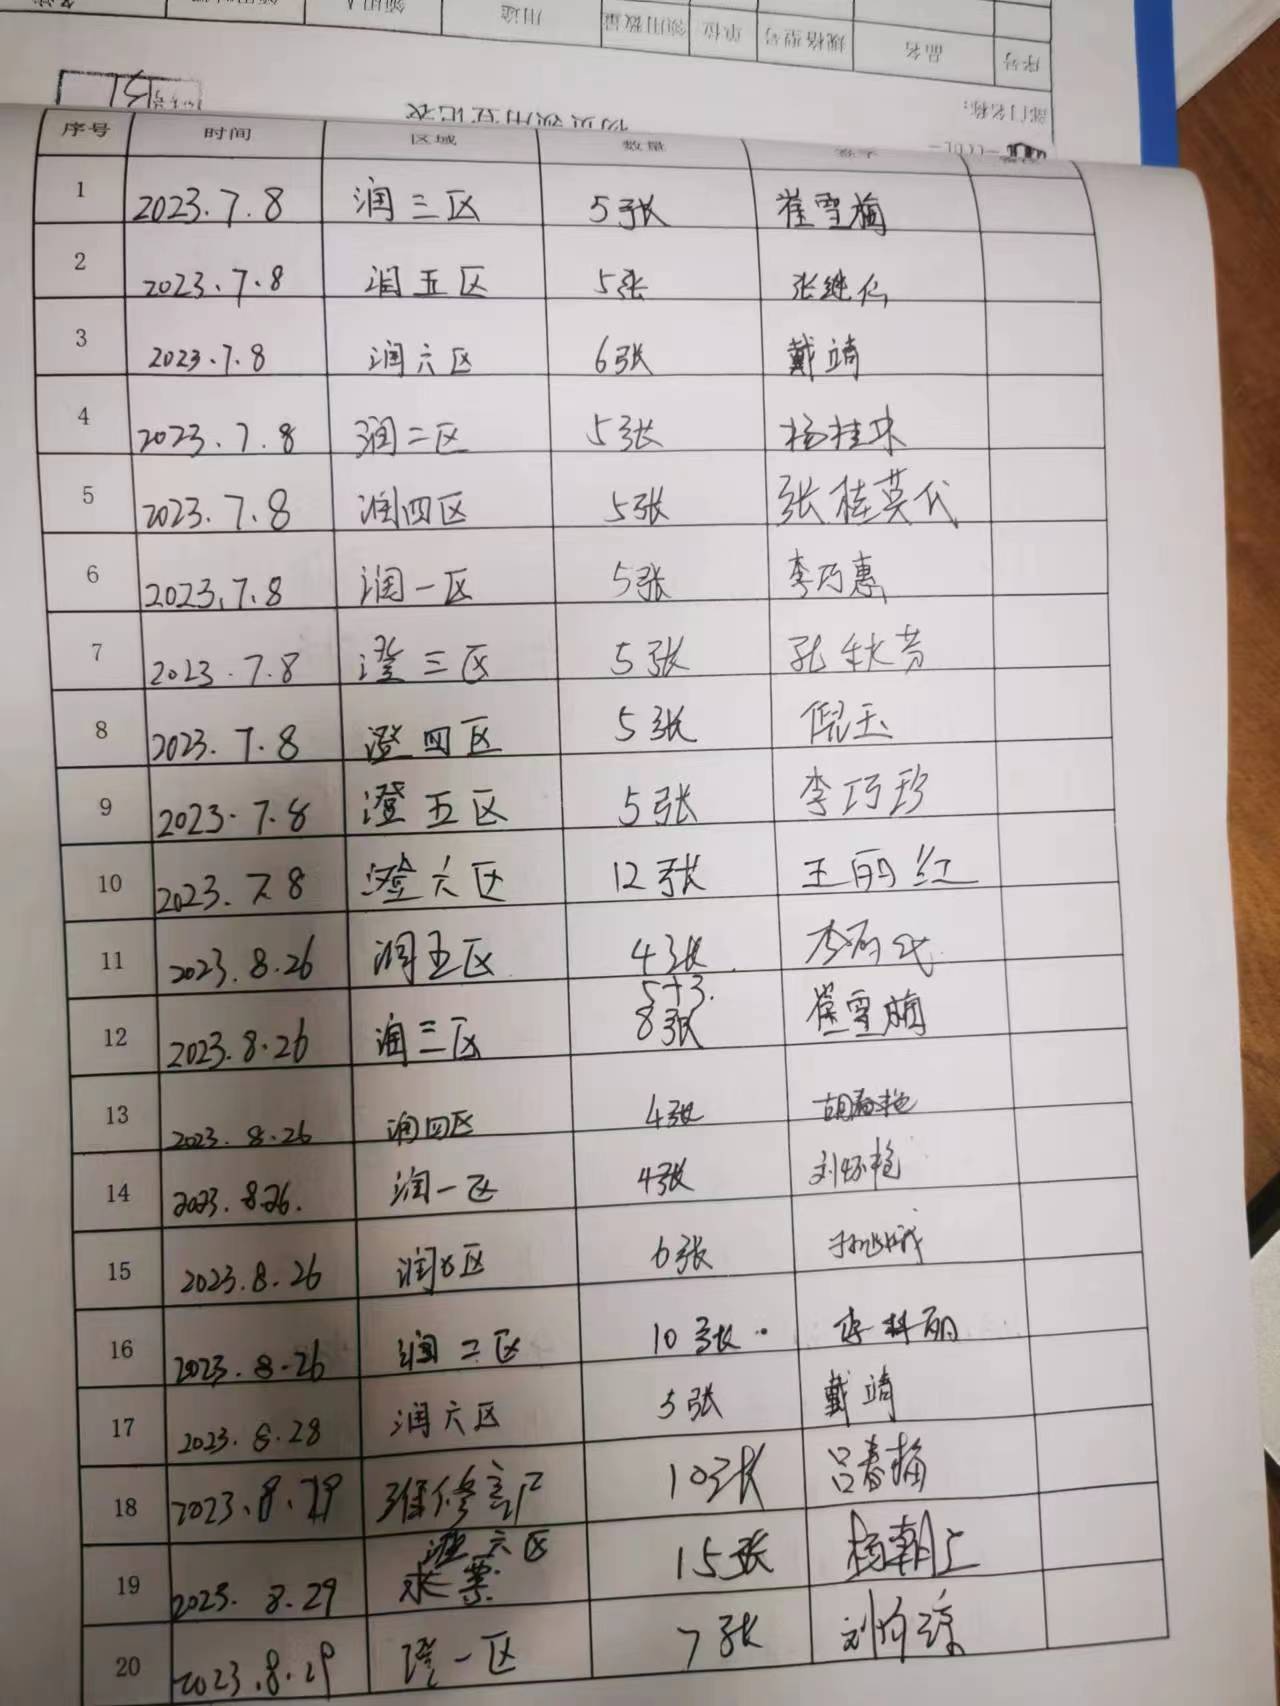 序号 品名 规格型号 单位 领用数量 用途 领用人
部门名称:
物资领用登记表
序号 时间 区域 数量 签字
1 2023.7.8 润三区 5张 崔雪梅
2 2023.7.8 润五区 5张 张继仙
3 2023.7.8 润六区 6张 戴靖
4 2023.7.8 润二区 5张 杨桂珠
5 2023.7.8 润四区 5张 张桂英代
6 2023.7.8 润一区 5张 李巧惠
7 2023.7.8 澄三区 5张 张秋芳
8 2023.7.8 澄四区 5张 倪玉
9 2023.7.8 澄五区 5张 李巧珍
10 2023.7.8 澄六区 12张 王丽红
11 2023.8.26 润五区 4张
5+3.
12 2023.8.26 润三区 8张 崔雪梅
13 2023.8.26 润四区 4张
14 2023.8.26. 润一区 4张
15 2023.8.26 润六区 6张
16 2023.8.26 润二区 10张.
17 2023.8.28 润六区 5张 戴靖
18 2023.8.29 10张 吕春梅
澄六区
19 2023.8.29 15张
20 2023.8.29 澄一区 7张